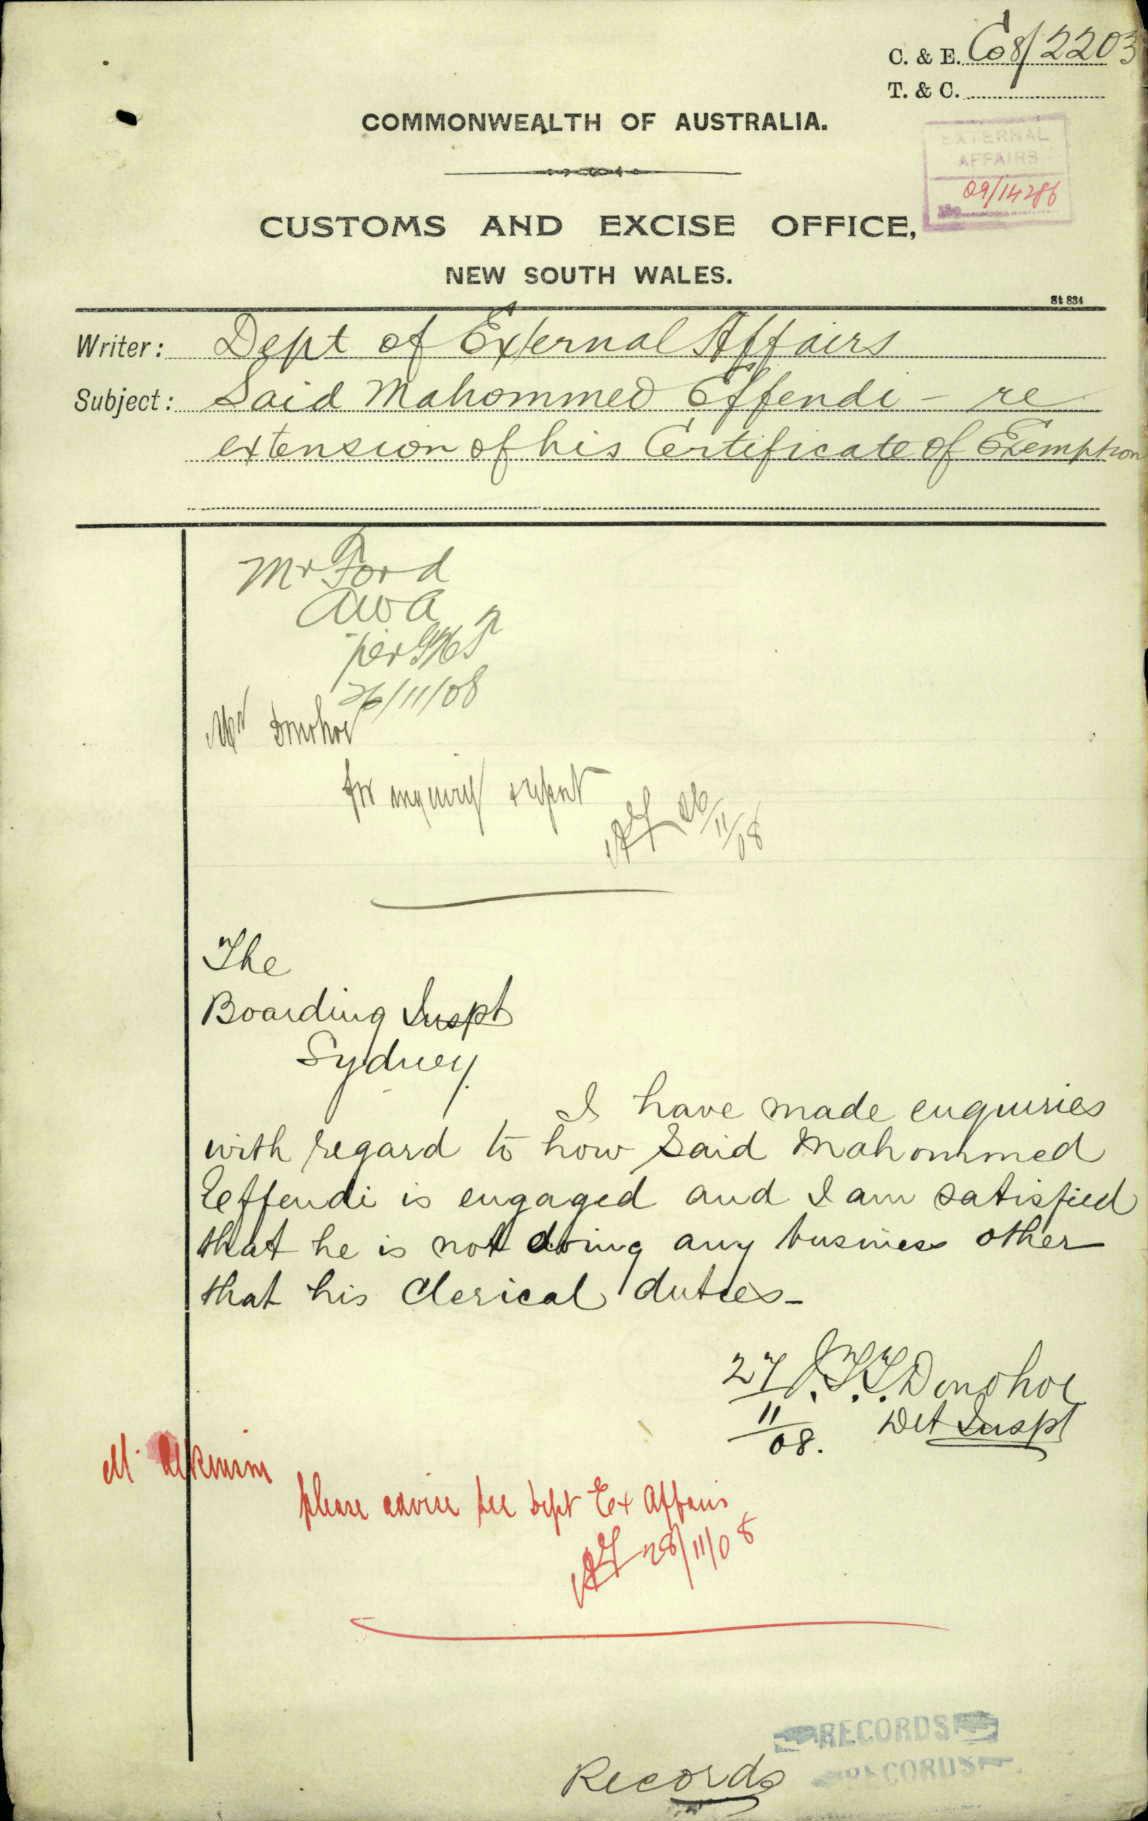 C. & E. Co8/2203
T. & C.
COMMONWEALTH OF AUSTRALIA.
EXTERNAL
AFFAIRS
No 09/14286
CUSTOMS AND EXCISE OFFICE,
NEW SOUTH WALES.
St 834
Writer: Dept of External Affairs
Subject: Said Mahommed Effendi – re
extension of his Certificate of Exemption
Mr Ford
AWA
per
26/11/08
Mr Donohoe
for inquiry & report
26/11/08
The
Boarding Inspt
Sydney
I have made enquiries
with regard to how Said Mahommed
Effendi is engaged and I am satisfied
that he is not doing any business other
that his Clerical duties –
27/11/08. J.T.T. Donohoe
Det Inspt
Mr
please advise the Dept Ex Affairs
28/11/08
RECORDS
RECORDS
Records